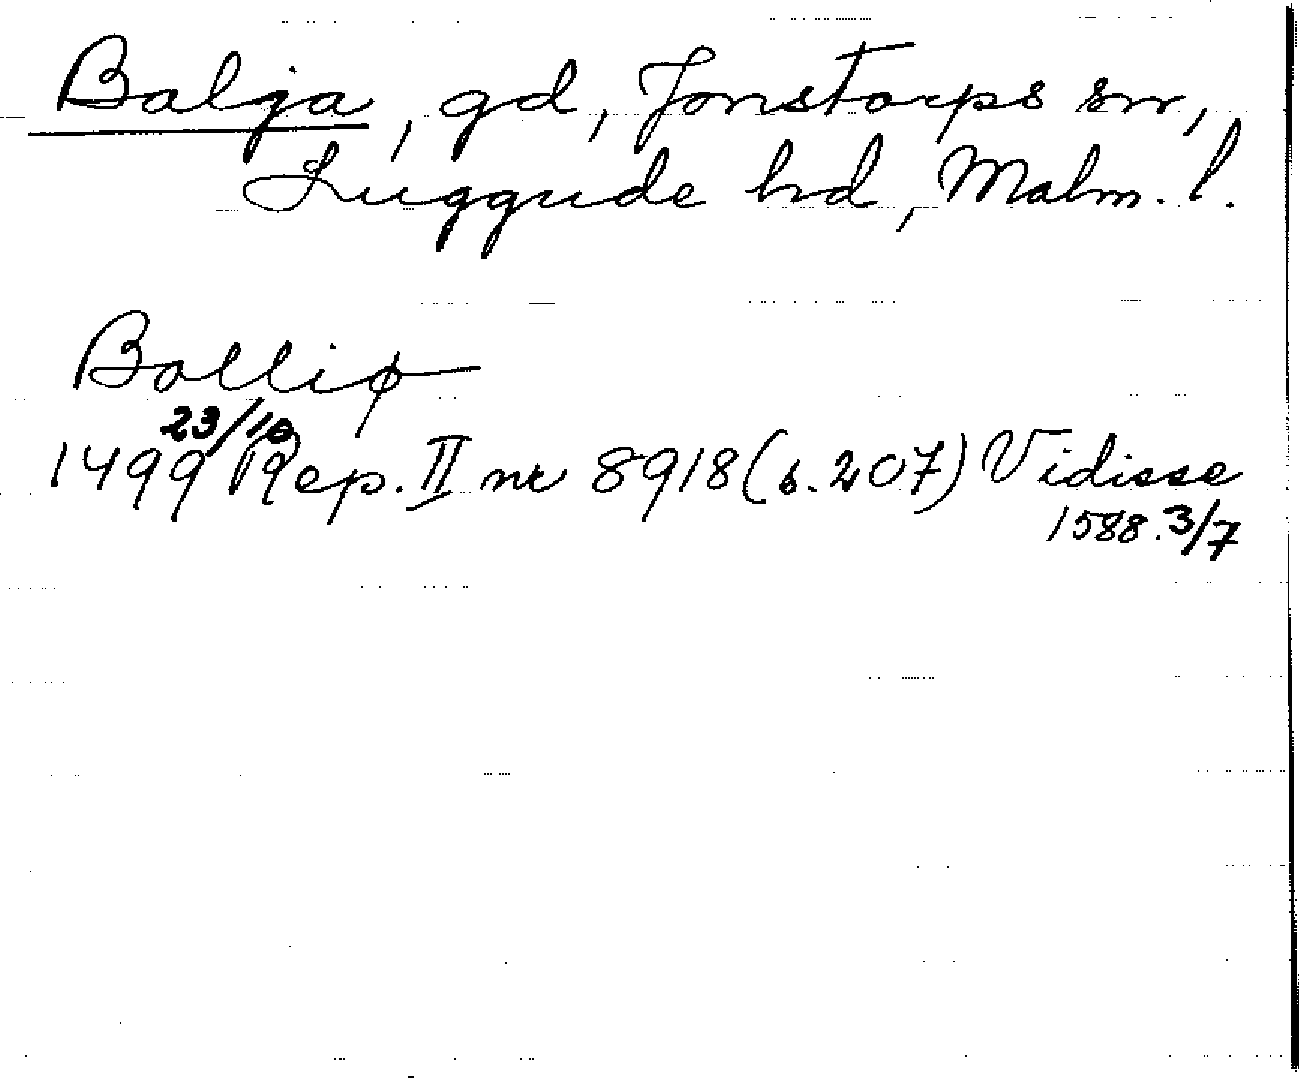 Balja, gd, Jonstorps sn,
Luggude hd, Malm. l.
Bolliø
23/10
1499 Rep. II nr 8918 (s. 207) Vidisse
1588. 3/7